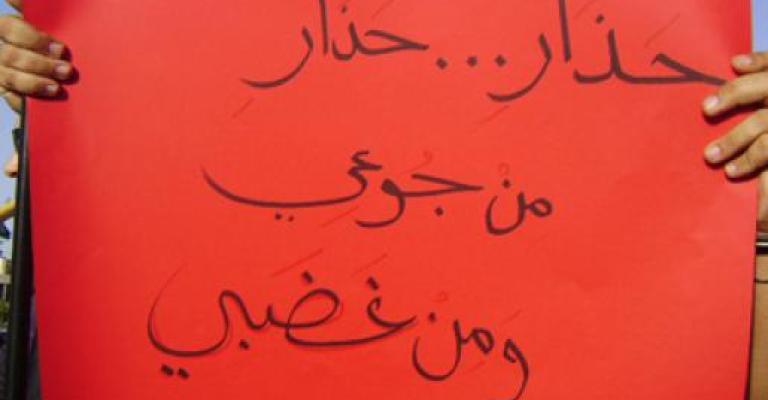 حَذَارِ...حَذَارِ
مِنْ جُوْعِي
وَمِنْ غَضَبِي